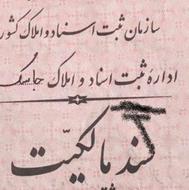 سازمان ثبت اسناد و املاک کشور
اداره ثبت اسناد و املاک
سند مالکیت